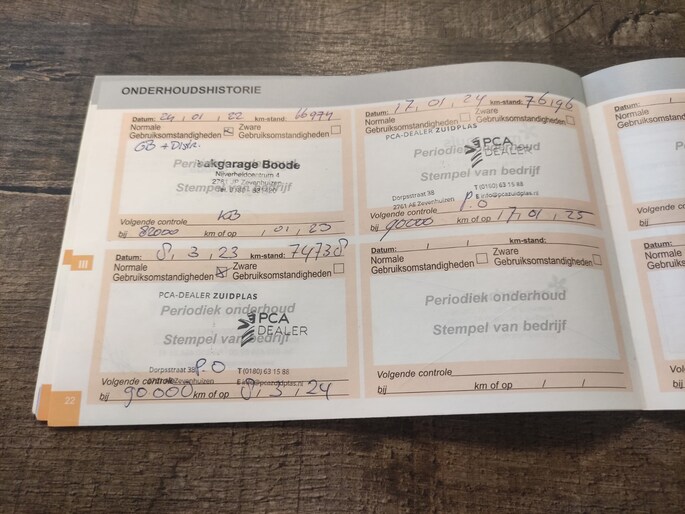 ONDERHOUDSHISTORIE
Datum: 24, 01, 22 km-stand: 66974
Normale Gebruiksomstandigheden
Zware Gebruiksomstandigheden
GB + Distr.
Periodiek onderhoud
Vakgarage Boode
Nijverheidcentrum 4
Stempel van bedrijf
2761 JP Zevenhuizen
Volgende controle KB
bij 82000 km of op , 01, 23
Datum: 17, 01, 24 km-stand: 76,196
Normale Gebruiksomstandigheden
Zware Gebruiksomstandigheden
PCA-DEALER ZUIDPLAS
PCA DEALER
Periodiek onderhoud
Stempel van bedrijf
Dorpsstraat 38 T (0180) 63 15 88
2761 AE Zevenhuizen E info@pcazuidplas.nl
P.O
Volgende controle
bij 90000 km of op 17, 01, 25
Datum: 8, 3, 23 km-stand: 74738
Normale Gebruiksomstandigheden
Zware Gebruiksomstandigheden
PCA-DEALER ZUIDPLAS
Periodiek onderhoud
PCA DEALER
Stempel van bedrijf
Dorpsstraat 38 P.O T (0180) 63 15 88
Volgende controle Zevenhuizen E info@pcazuidplas.nl
bij 90000 km of op 8, 3, 24
Datum: / / km-stand:
Normale Gebruiksomstandigheden
Zware Gebruiksomstandigheden
Periodiek onderhoud
Stempel van bedrijf
Volgende controle
bij km of op / /
III
22
Datum:
Normale
Gebruiksomst
Volgende cont
bij
Datum:
Normale
Gebruiksomsta
Volgende contro
bij